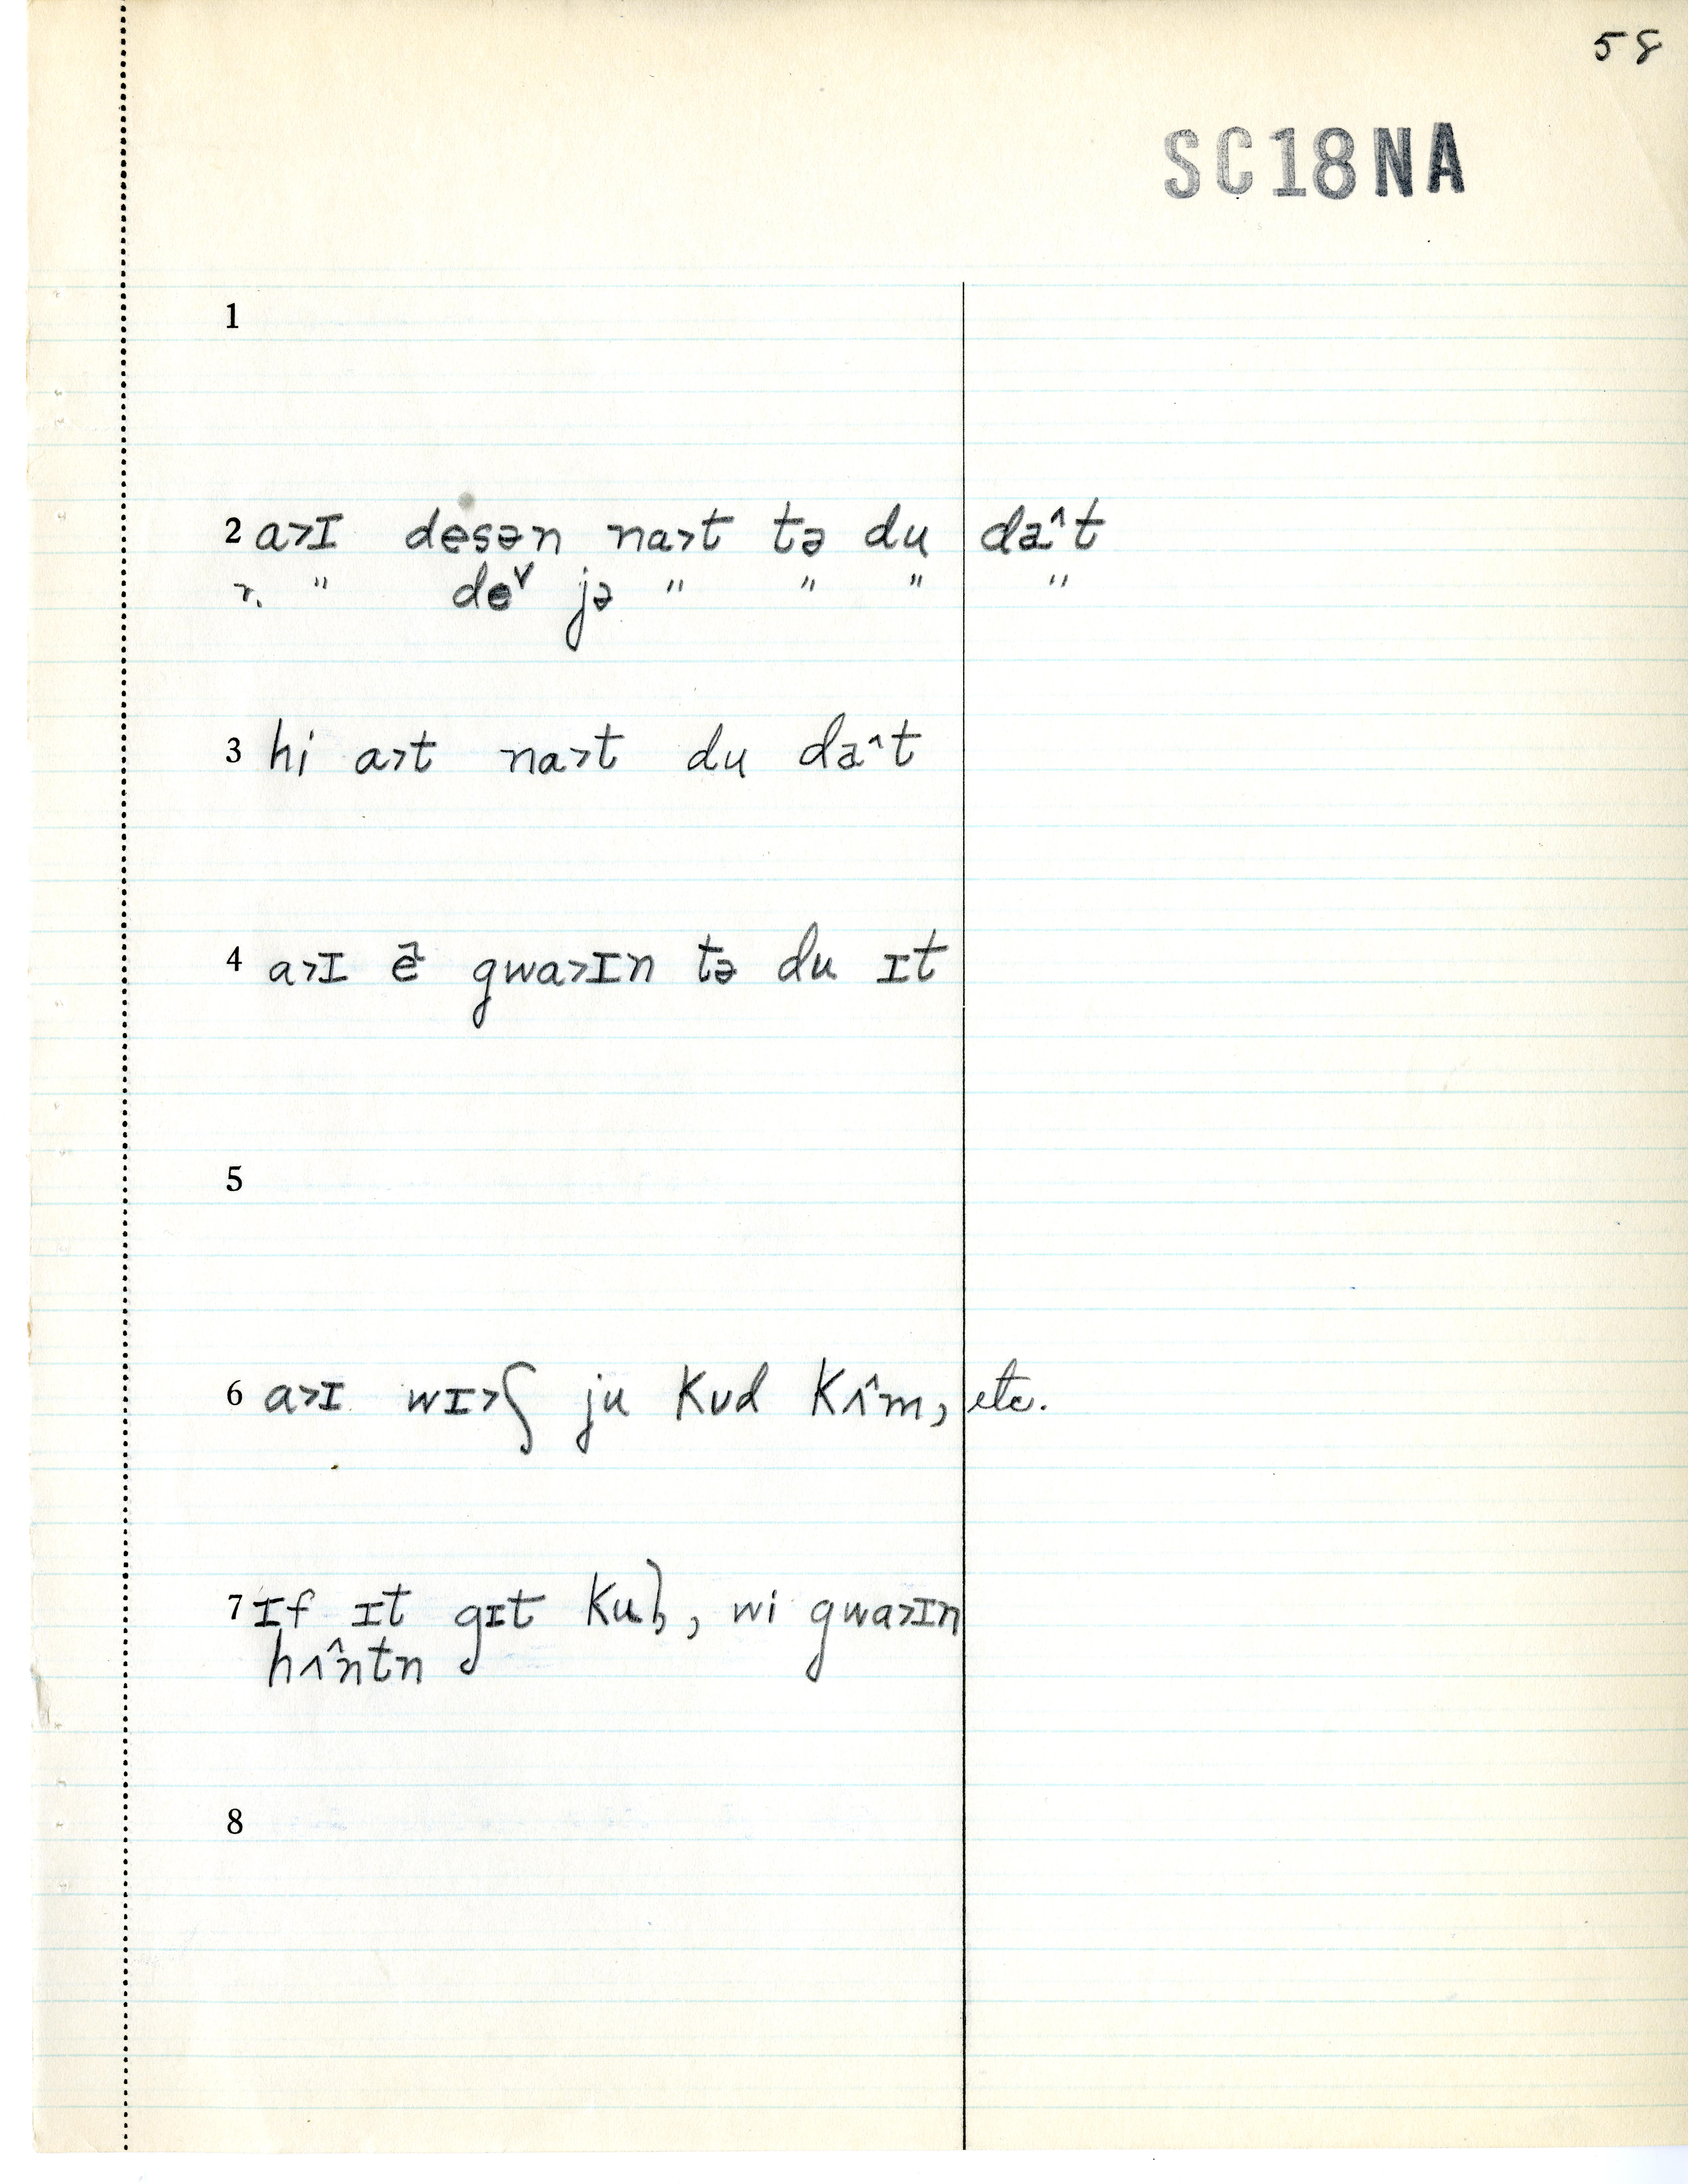 58
SC18NA
1
2 a˃ɪ desən na˃t tə du də^t
r. " de˅ jə " " " "
3 hi a˃t na˃t du də^t
4 a˃ɪ gwa˃ɪn tə du ɪt
5
6 a˃ɪ wɪ˃ʃ ju kʊd kʌ^m, etc.
7 ɪf ɪt gɪt kul, wi gwa˃ɪn
hʌ^ntn
8